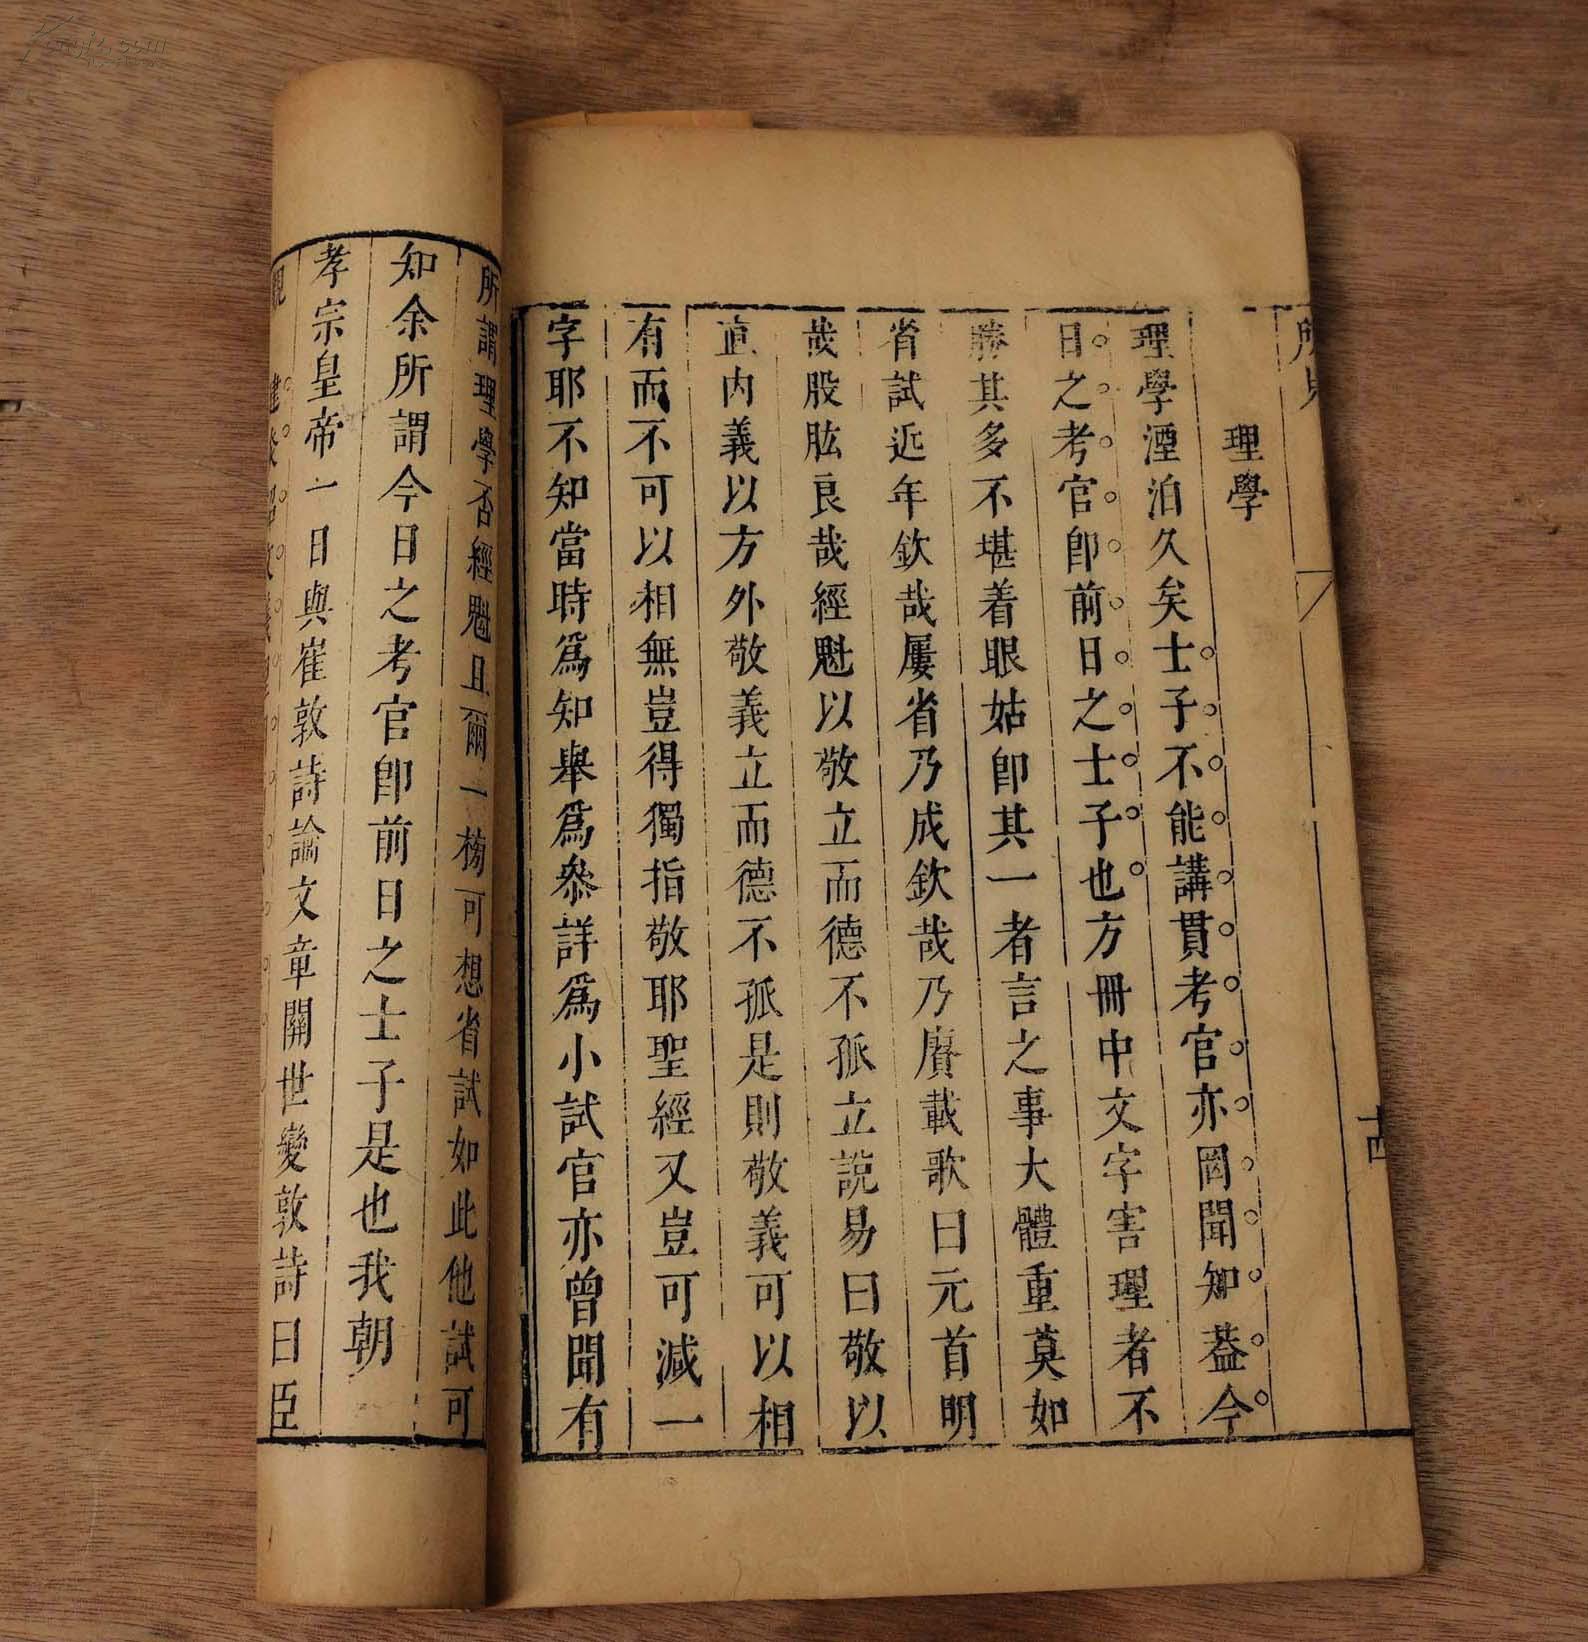 理學
理學湮泊久矣士子不能講貫考官亦罔聞知葢今
日之考官卽前日之士子也方冊中文字害理者不
勝其多不堪着眼姑卽其一者言之事大體重莫如
省試近年欽哉屢省乃成欽哉乃賡載歌曰元首明
哉股肱良哉經魁以敬立而德不孤立說易曰敬以
直內義以方外敬義立而德不孤是則敬義可以相
有而不可以相無豈得獨指敬耶聖經又豈可減一
字耶不知當時爲知舉爲叅詳爲小試官亦曾聞有
所謂理學否經魁且爾一榜可想省試如此他試可
知余所謂今日之考官卽前日之士子是也我朝
孝宗皇帝一日與崔敦詩論文章關世變敦詩曰臣